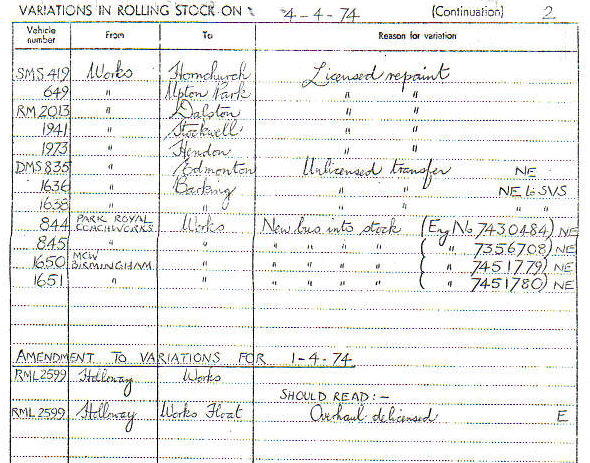 VARIATIONS IN ROLLING STOCK ON 4-4-74 (Continuation) 2
Vehicle number From To Reason for variation
SMS 419 Works Hornchurch Licensed repaint
649 " Upton Park " "
RM 2013 " Dalston " "
1941 " Stockwell " "
1973 " Hendon " "
DMS 835 " Edmonton Unlicensed transfer NE
1636 " Barking " " NE to SVS
1638 " " " " " "
844 PARK ROYAL COACHWORKS Works New bus into stock (Eng No 7430484) NE
845 " " " " " " ( " 7356708) NE
1650 MCW BIRMINGHAM " " " " " ( " 7451779) NE
1651 " " " " " " ( " 7451780) NE
AMENDMENT TO VARIATIONS FOR 1-4-74
RML 2599 Holloway Works
SHOULD READ:-
RML 2599 Holloway Works Float Overhaul delicensed E